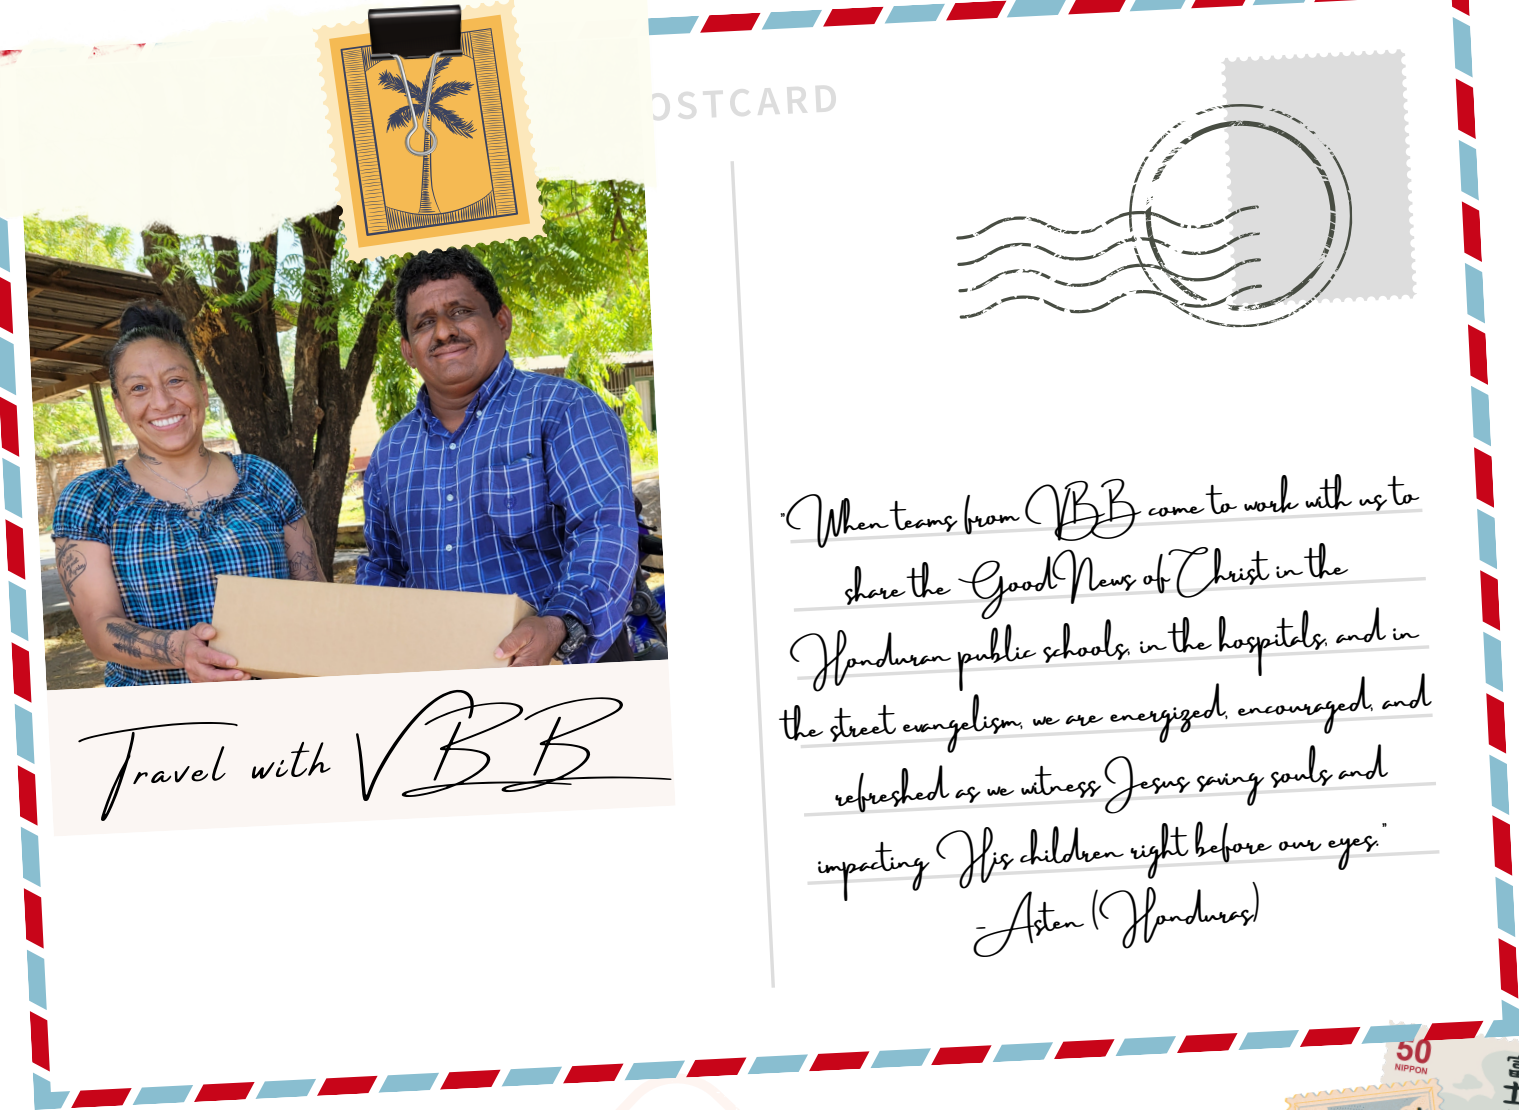 OSTCARD
Travel with VBB
"When teams from VBB come to work with us to
share the Good News of Christ in the
Honduran public schools, in the hospitals, and in
the street evangelism, we are energized, encouraged, and
refreshed as we witness Jesus saving souls and
impacting His children right before our eyes."
-Asten (Honduras)
50
NIPPON